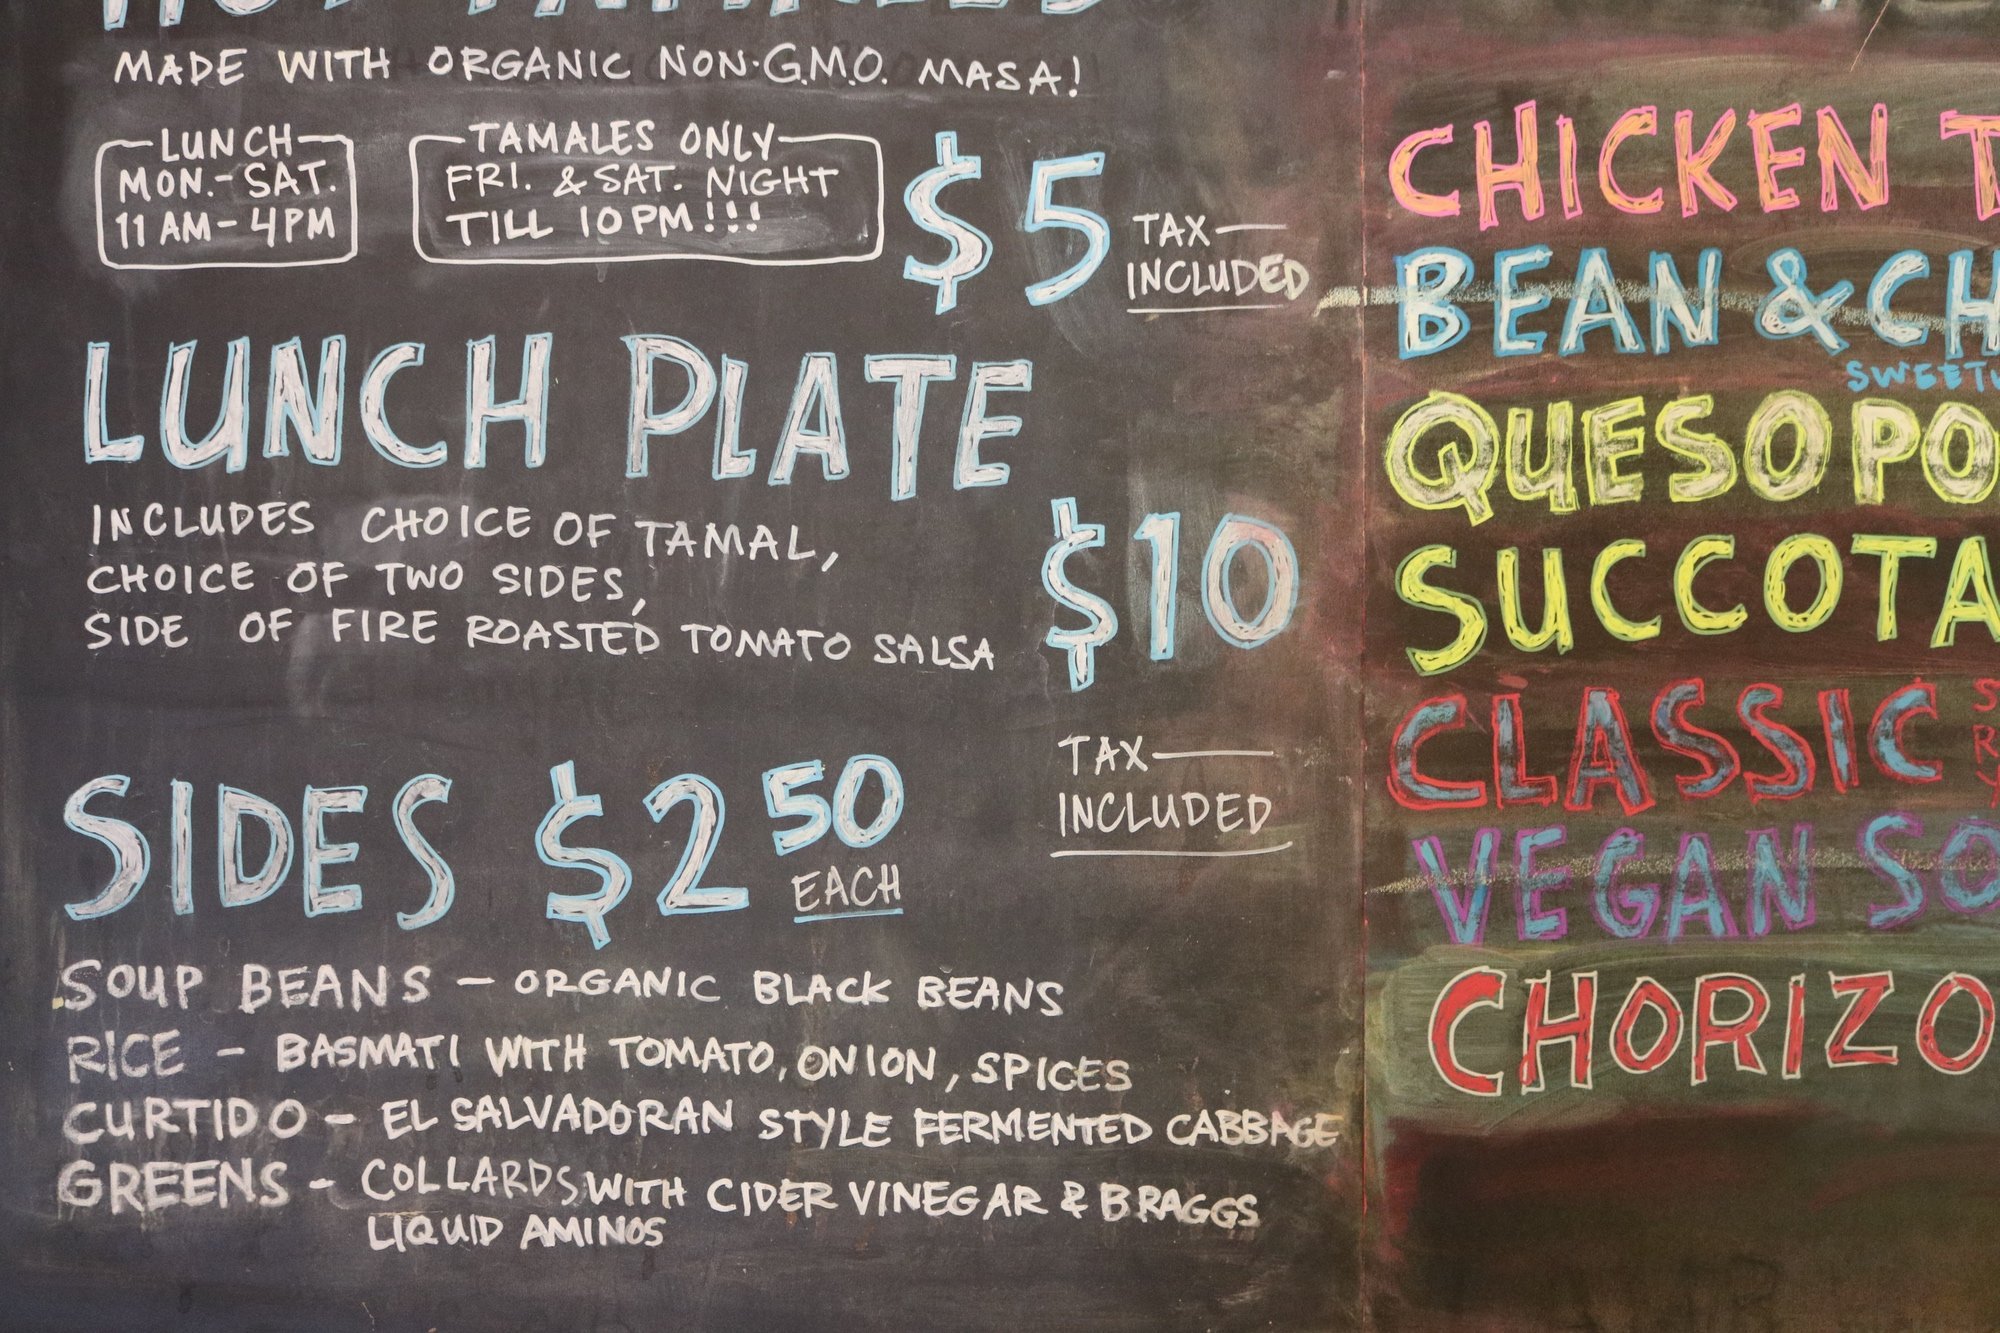 MADE WITH ORGANIC NON-G.M.O. MASA!
LUNCH
MON.-SAT.
11 AM-4PM
TAMALES ONLY
FRI. & SAT. NIGHT
TILL 10PM!!!
$5
TAX
INCLUDED
LUNCH PLATE
INCLUDES CHOICE OF TAMAL,
CHOICE OF TWO SIDES,
SIDE OF FIRE ROASTED TOMATO SALSA
$10
TAX
INCLUDED
SIDES $2 50
EACH
SOUP BEANS - ORGANIC BLACK BEANS
RICE - BASMATI WITH TOMATO, ONION, SPICES
CURTIDO - EL SALVADORAN STYLE FERMENTED CABBAGE
GREENS - COLLARDS WITH CIDER VINEGAR & BRAGGS
LIQUID AMINOS
CHICKEN T
BEAN & CH
SWEET
QUESO PO
SUCCOTA
CLASSIC
VEGAN SO
CHORIZO